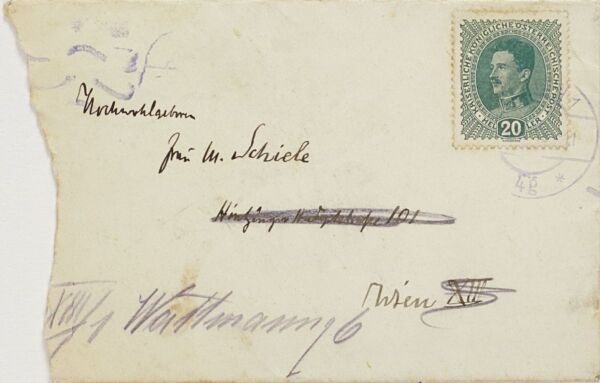 KAISERLICHE KÖNIGLICHE ÖSTERREICHISCHE POST
HELLER 20 HELLER
Hochwohlgeboren
Frau M. Schiele
Hietzinger Hauptstraße 101
Wien XIII
XIII/1 Wattmanng 6